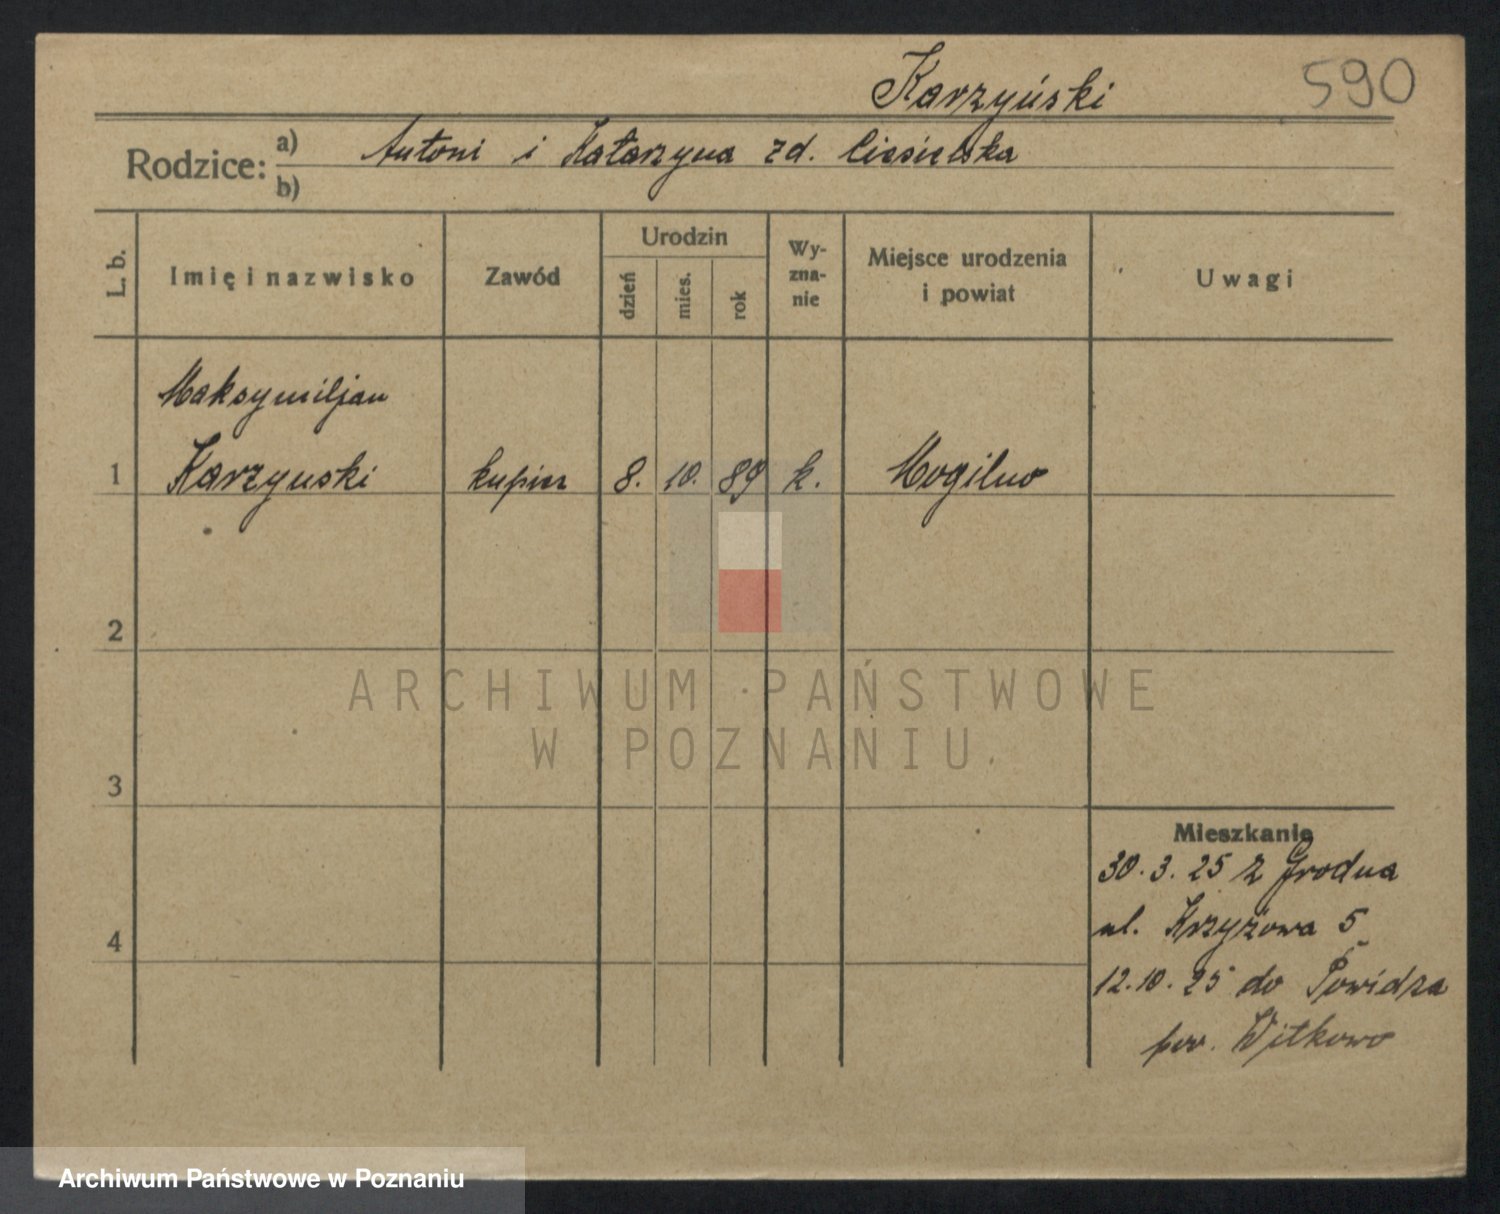 Karzyński 590
Rodzice: a) Antoni i Katarzyna zd. Ciesielska
b)
L. b. Imię i nazwisko Zawód Urodzin dzień mies. rok Wyznanie Miejsce urodzenia i powiat Uwagi
Maksymiljan
1 Karzynski kupiec 8. 10. 89 k. Mogilno
2
ARCHIWUM PAŃSTWOWE
W POZNANIU
3
Mieszkanie
30. 3. 25 z Grodna
ul. Krzyżowa 5
4
12. 10. 25 do Powidza
pow. Witkowo
Archiwum Państwowe w Poznaniu